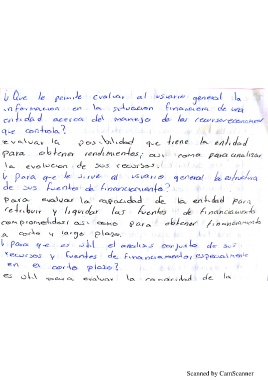 ¿Que le permite evaluar al usuario general la
informacion en la situacion financiera de una
entidad acerca del manejo de los recursos economicos
que controla?
evaluar la posibilidad que tiene la entidad
para obtener rendimientos, asi como para analizar
la evolucion de sus recursos.
¿Para que le sirve al usuario general la estructura
de sus fuentes de financiamiento?
Para evaluar la capacidad de la entidad para
retribuir y liquidar las fuentes de financiamiento
comprometidas asi como para obtener financiamiento
a corto y largo plazo.
¿Para que es util el analisis conjunto de sus
recursos y fuentes de financiamiento, especialmente
en el corto plazo?
es util para evaluar la capacidad de la
Scanned by CamScanner